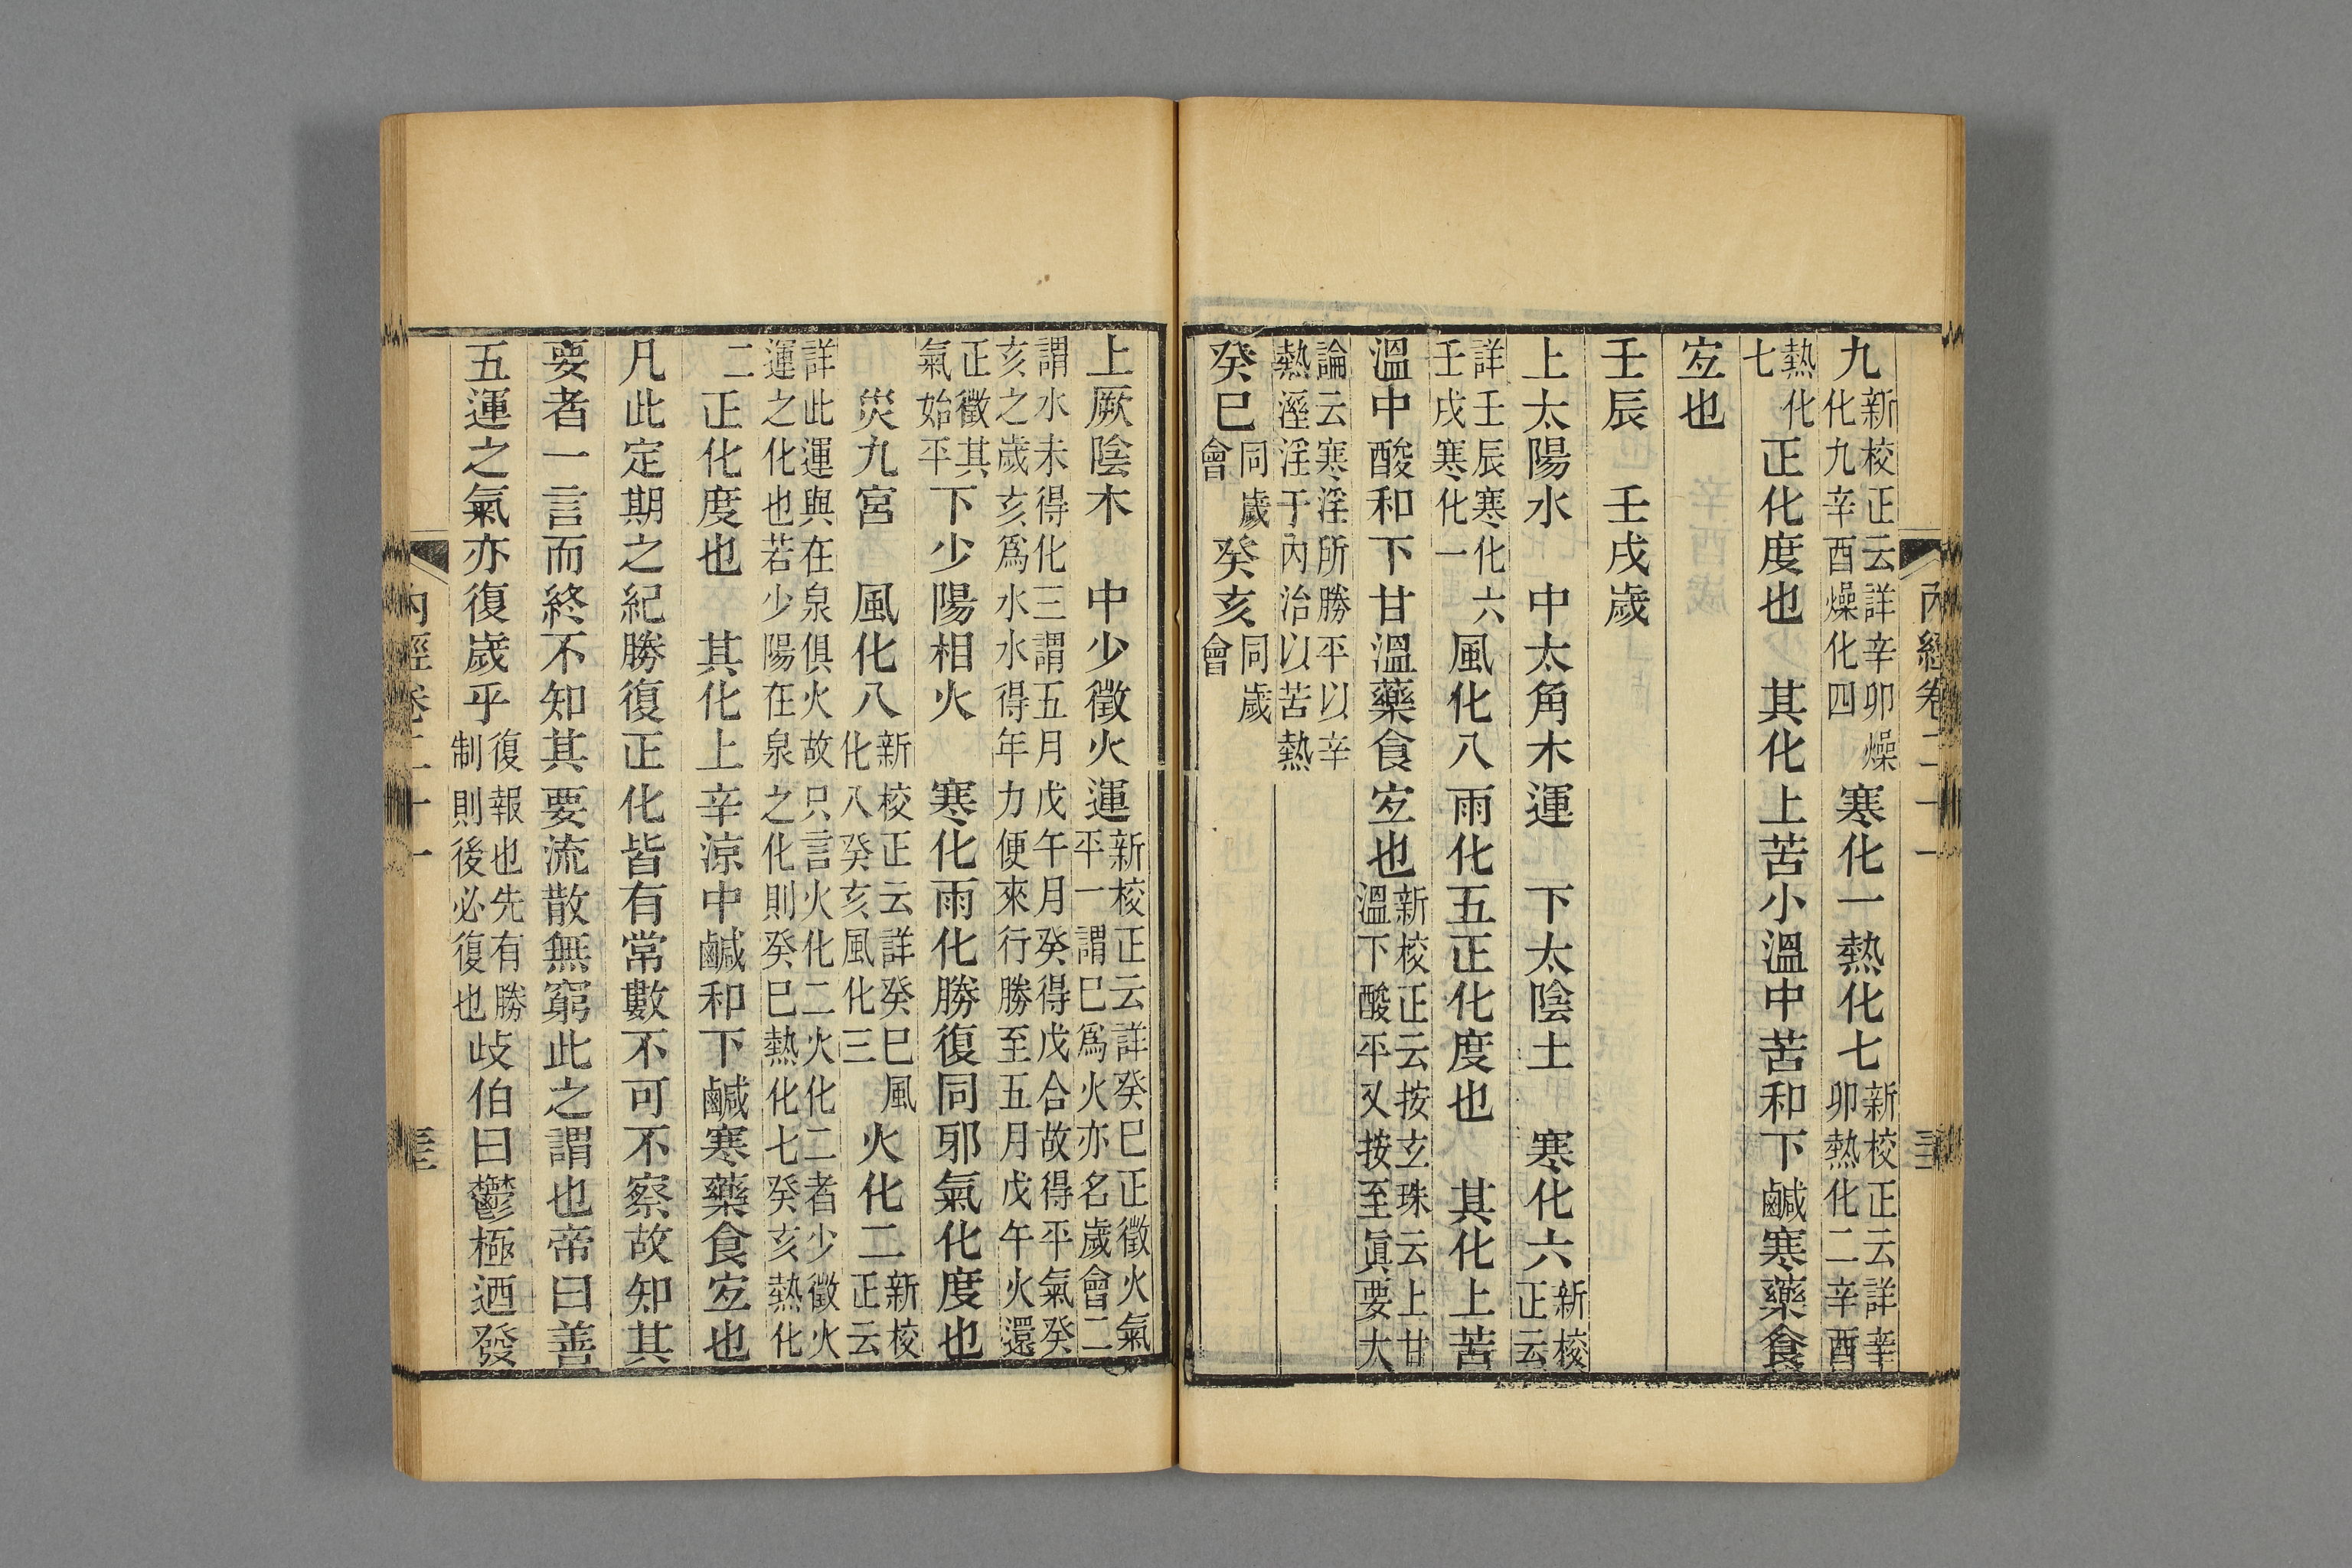 內經卷二十一
九新校正云詳辛卯燥化九辛酉燥化四　寒化一熱化七新校正云詳辛卯熱化二辛酉
熱化七正化度也　其化上苦小溫中苦和下鹹寒藥食
宐也
壬辰　壬戌歲
上太陽水　中太角木運　下太陰土　寒化六新校正云
詳壬辰寒化六壬戌寒化一風化八雨化五正化度也　其化上苦
溫中酸和下甘溫藥食宐也新校正云按玄珠云上甘溫下酸平又按至眞要大
論云寒淫所勝平以辛熱溼淫于內治以苦熱
癸巳同歲會癸亥同歲會
上厥陰木　中少徵火運新校正云詳癸巳正徵火氣平一謂巳爲火亦名歲會二
謂水未得化三謂五月戊午月癸得戊合故得平氣癸亥之歲亥爲水水得年力便來行勝至五月戊午火還
正徵其氣始平下少陽相火　寒化雨化勝復同邪氣化度也
災九宮　風化八新校正云詳癸巳風化八癸亥風化三　火化二新校正云
詳此運與在泉俱火故只言火化二火化二者少徵火運之化也若少陽在泉之化則癸巳熱化七癸亥熱化
二正化度也　其化上辛涼中鹹和下鹹寒藥食宐也
凡此定期之紀勝復正化皆有常數不可不察故知其
要者一言而終不知其要流散無窮此之謂也帝曰善
五運之氣亦復歲乎復報也先有勝制則後必復也歧伯曰鬱極迺發
內經卷二十一